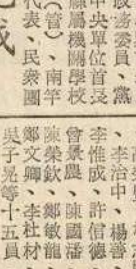 委員、黨
中央單位首長
縣屬機關學校
(管)、南竿
代表、民衆團
成
、李治中、楊善
李惟成、許信德
曾景農、陳國潘
陳榮欽、鄭敏龍
鄭文卿、李杜材
吳子晃等十五員